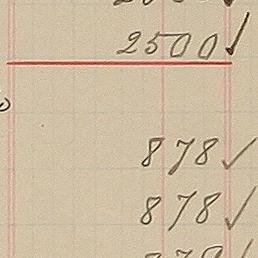 2500 ✓
878 ✓
878 ✓